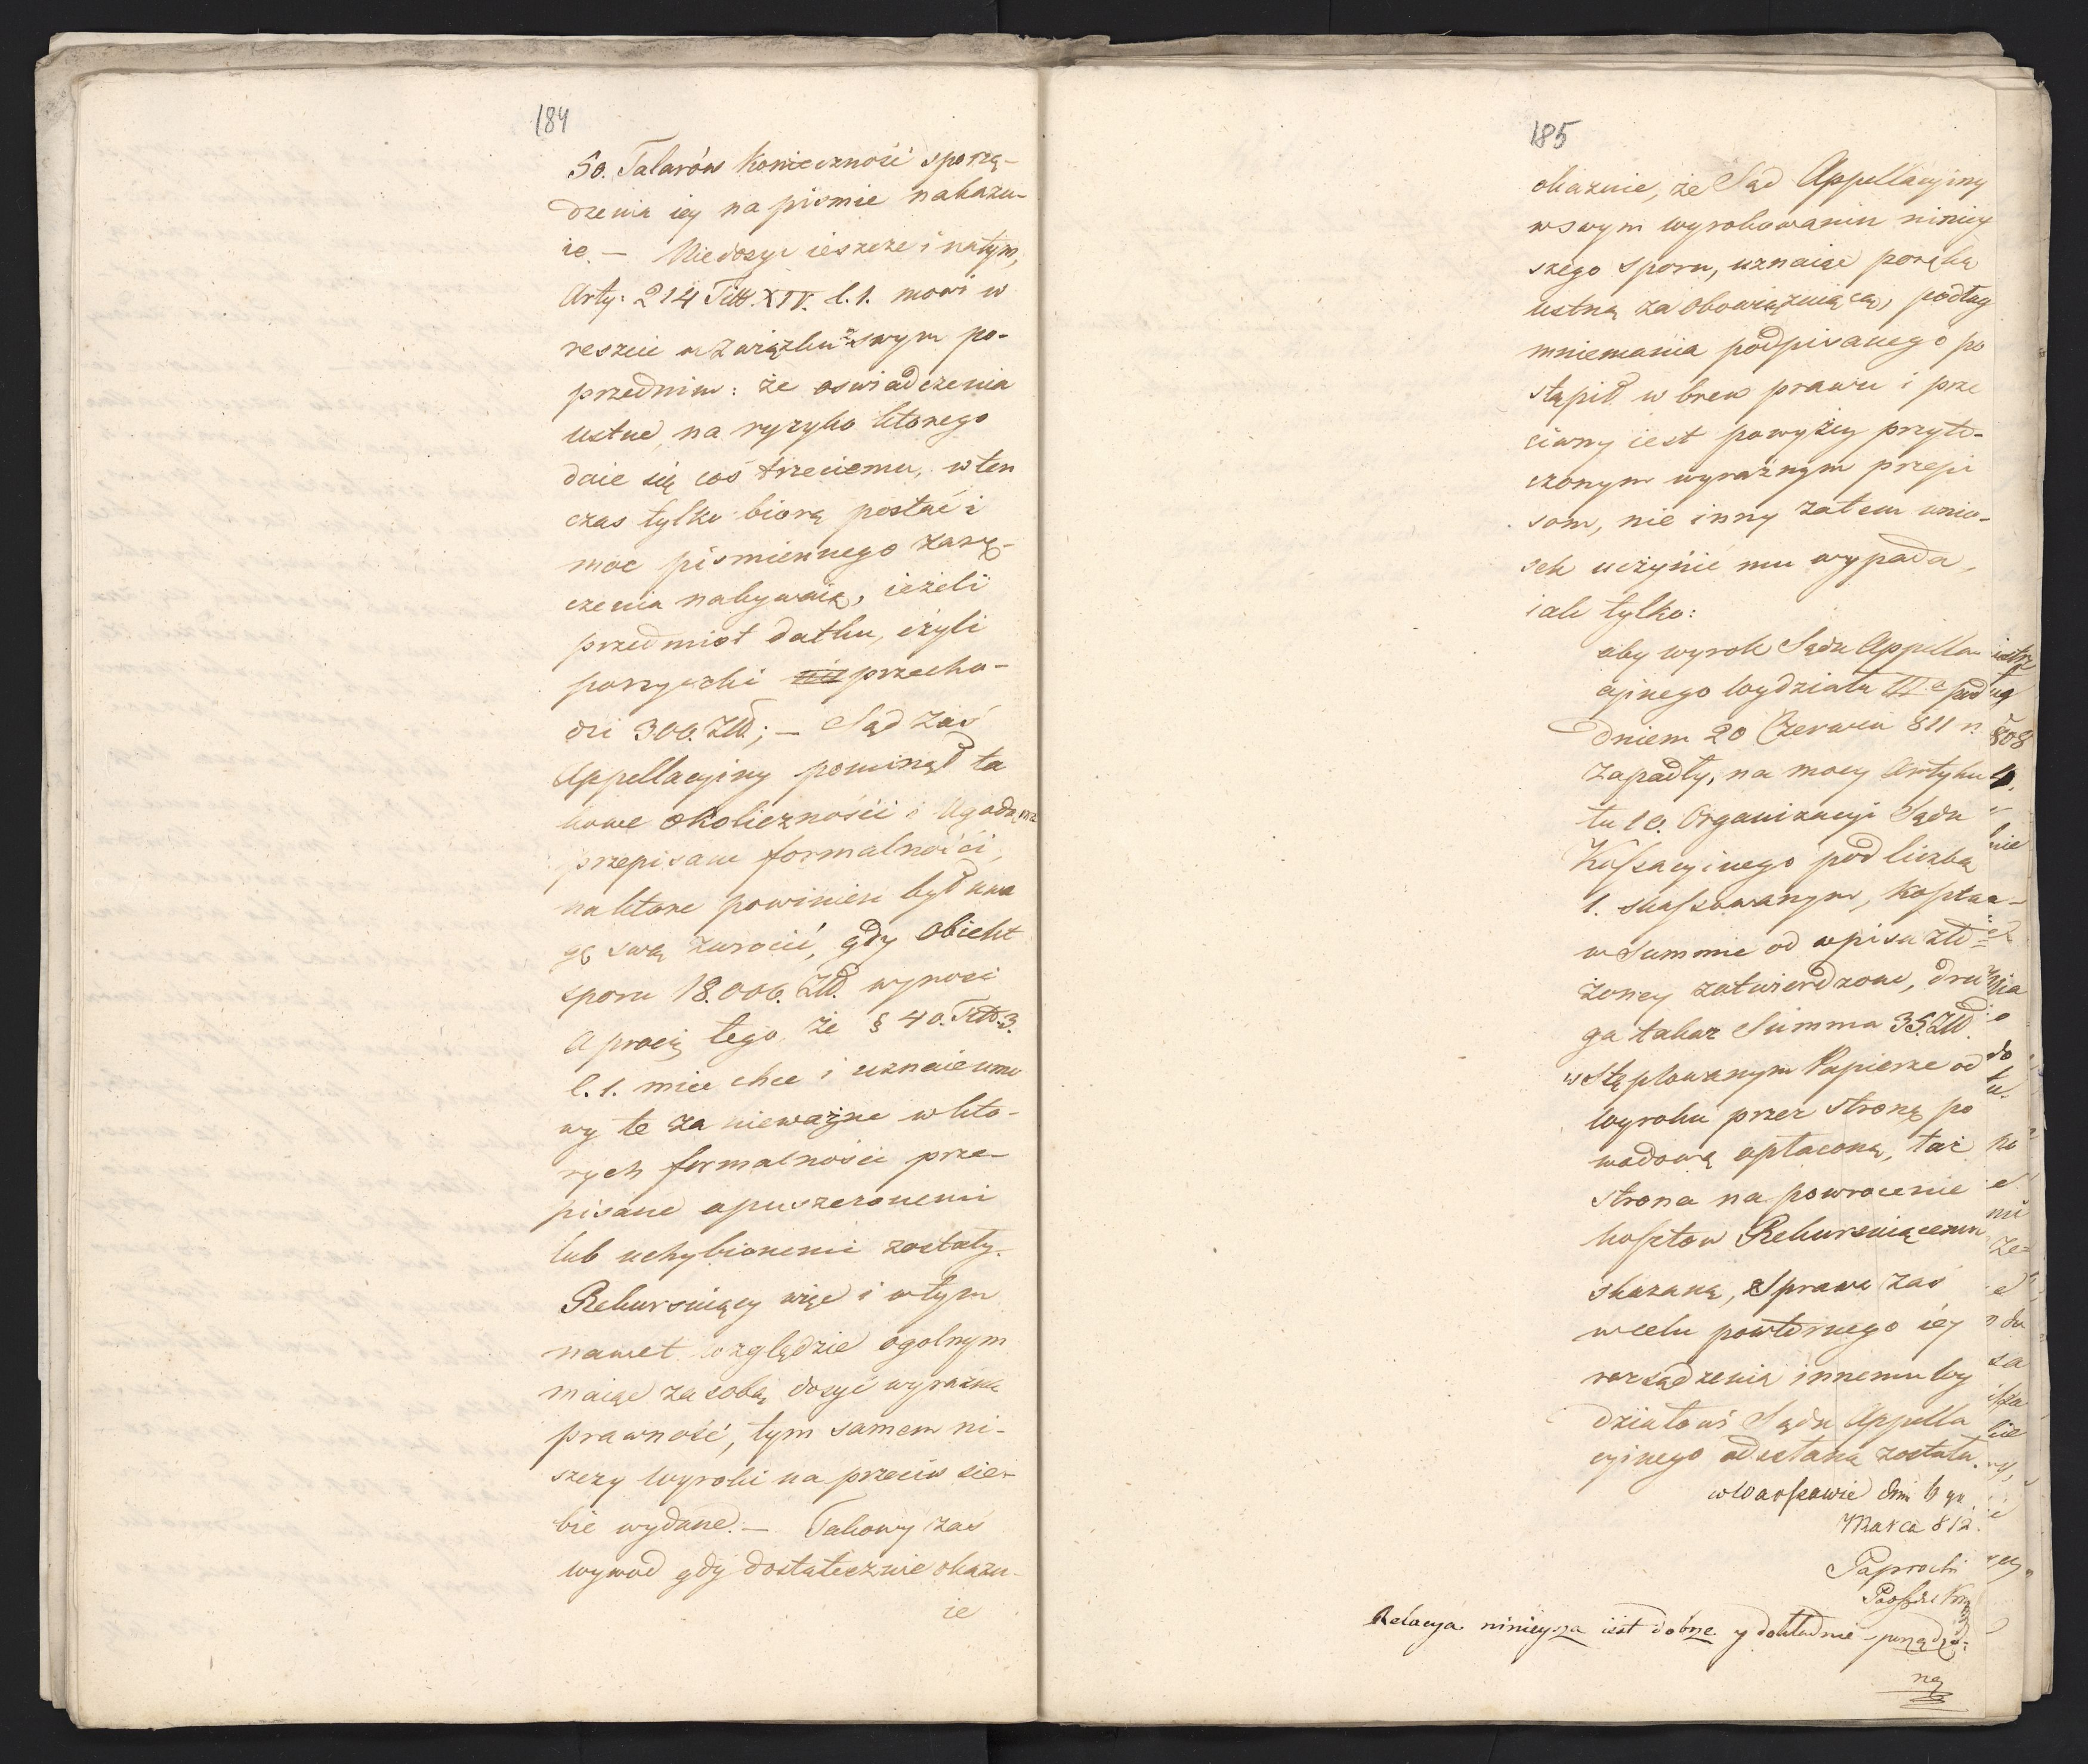 184
50. Talarów konieczność sporzą-
dzenia iey na pismie nakazu-
ie. — Niedosyć ieszcze i natym,
Arty: 214 Titt. XIV. l. 1. mowi w
reszcie w związku z swym po-
przednim: że oswiadczenia
ustne, na ryzyko ktorego
daie się coś trzeciemu, w ten
czas tylko biorą postać i
moc pismiennego zarę-
czenia nabywaią, ieżeli
przedmiot datku, czyli
pożyczki przecho-
dzi 300. Złł; — Sąd zaś
Appellacyiny pominął ta
kowe okoliczności i
przepisane formalności,
na ktore powinien był uwa
gę swą zwrocić, gdy obiekt
sporu 18.000. Złł. wynosi
A procz tego, że § 40. Titt 3.
l. 1. miec chce i uznaie umo
wy te za nieważne w kto-
rych formalności prze-
pisane opuszczonemi
lub uchybionemi zostały.
Rekursuiący więc i w tym
nawet względzie ogolnym
maiąc za sobą dosyć wyrazną
prawność, tym samem ni-
szczy wyroki na przeciw sie-
bie wydane. — Takowy zaś
wywod gdy dostatecznie okazu-
ie
185
okazuie, że Sąd Appellacyiny
w swym wyrokowaniu niniey
szego sporu, uznaiąc porękę
ustną za obowiązuiącą, podług
mniemania podpisanego po
stąpił w brew prawu i prze
ciwny iest powyżey przyto-
czonym wyraznym przepi
som, nie inny zatem wnio-
sek uczynić mu wypada,
iak tylko:
aby wyrok Sądu Appella
cyinego Wydziału III pod
dniem 20 Czerwca 811 r.
zapadły, na mocy Artyku
łu 10. Organizacyi Sądu
Kassacyinego pod liczbą
1. skassowanym, koszta
w Summie od wpisu zło
żoney zatwierdzone, dru
ga takaż Summa 35 Złł.
w stęplowanym Papierze od
Wyroku przez stronę po
wodową opłaconą, taż
strona na powrocenie
kosztow Rekursuiącemu
skazaną, Sprawa zaś
w celu powtornego iey
rozsądzenia innemu Wy
działowi Sądu Appella
cyinego odesłaną została.
w Warszawie dnia 6 go
Marca 812.
Paprocki
Relacya ninieysza iest dobrze y dokładnie sporządzo-
na